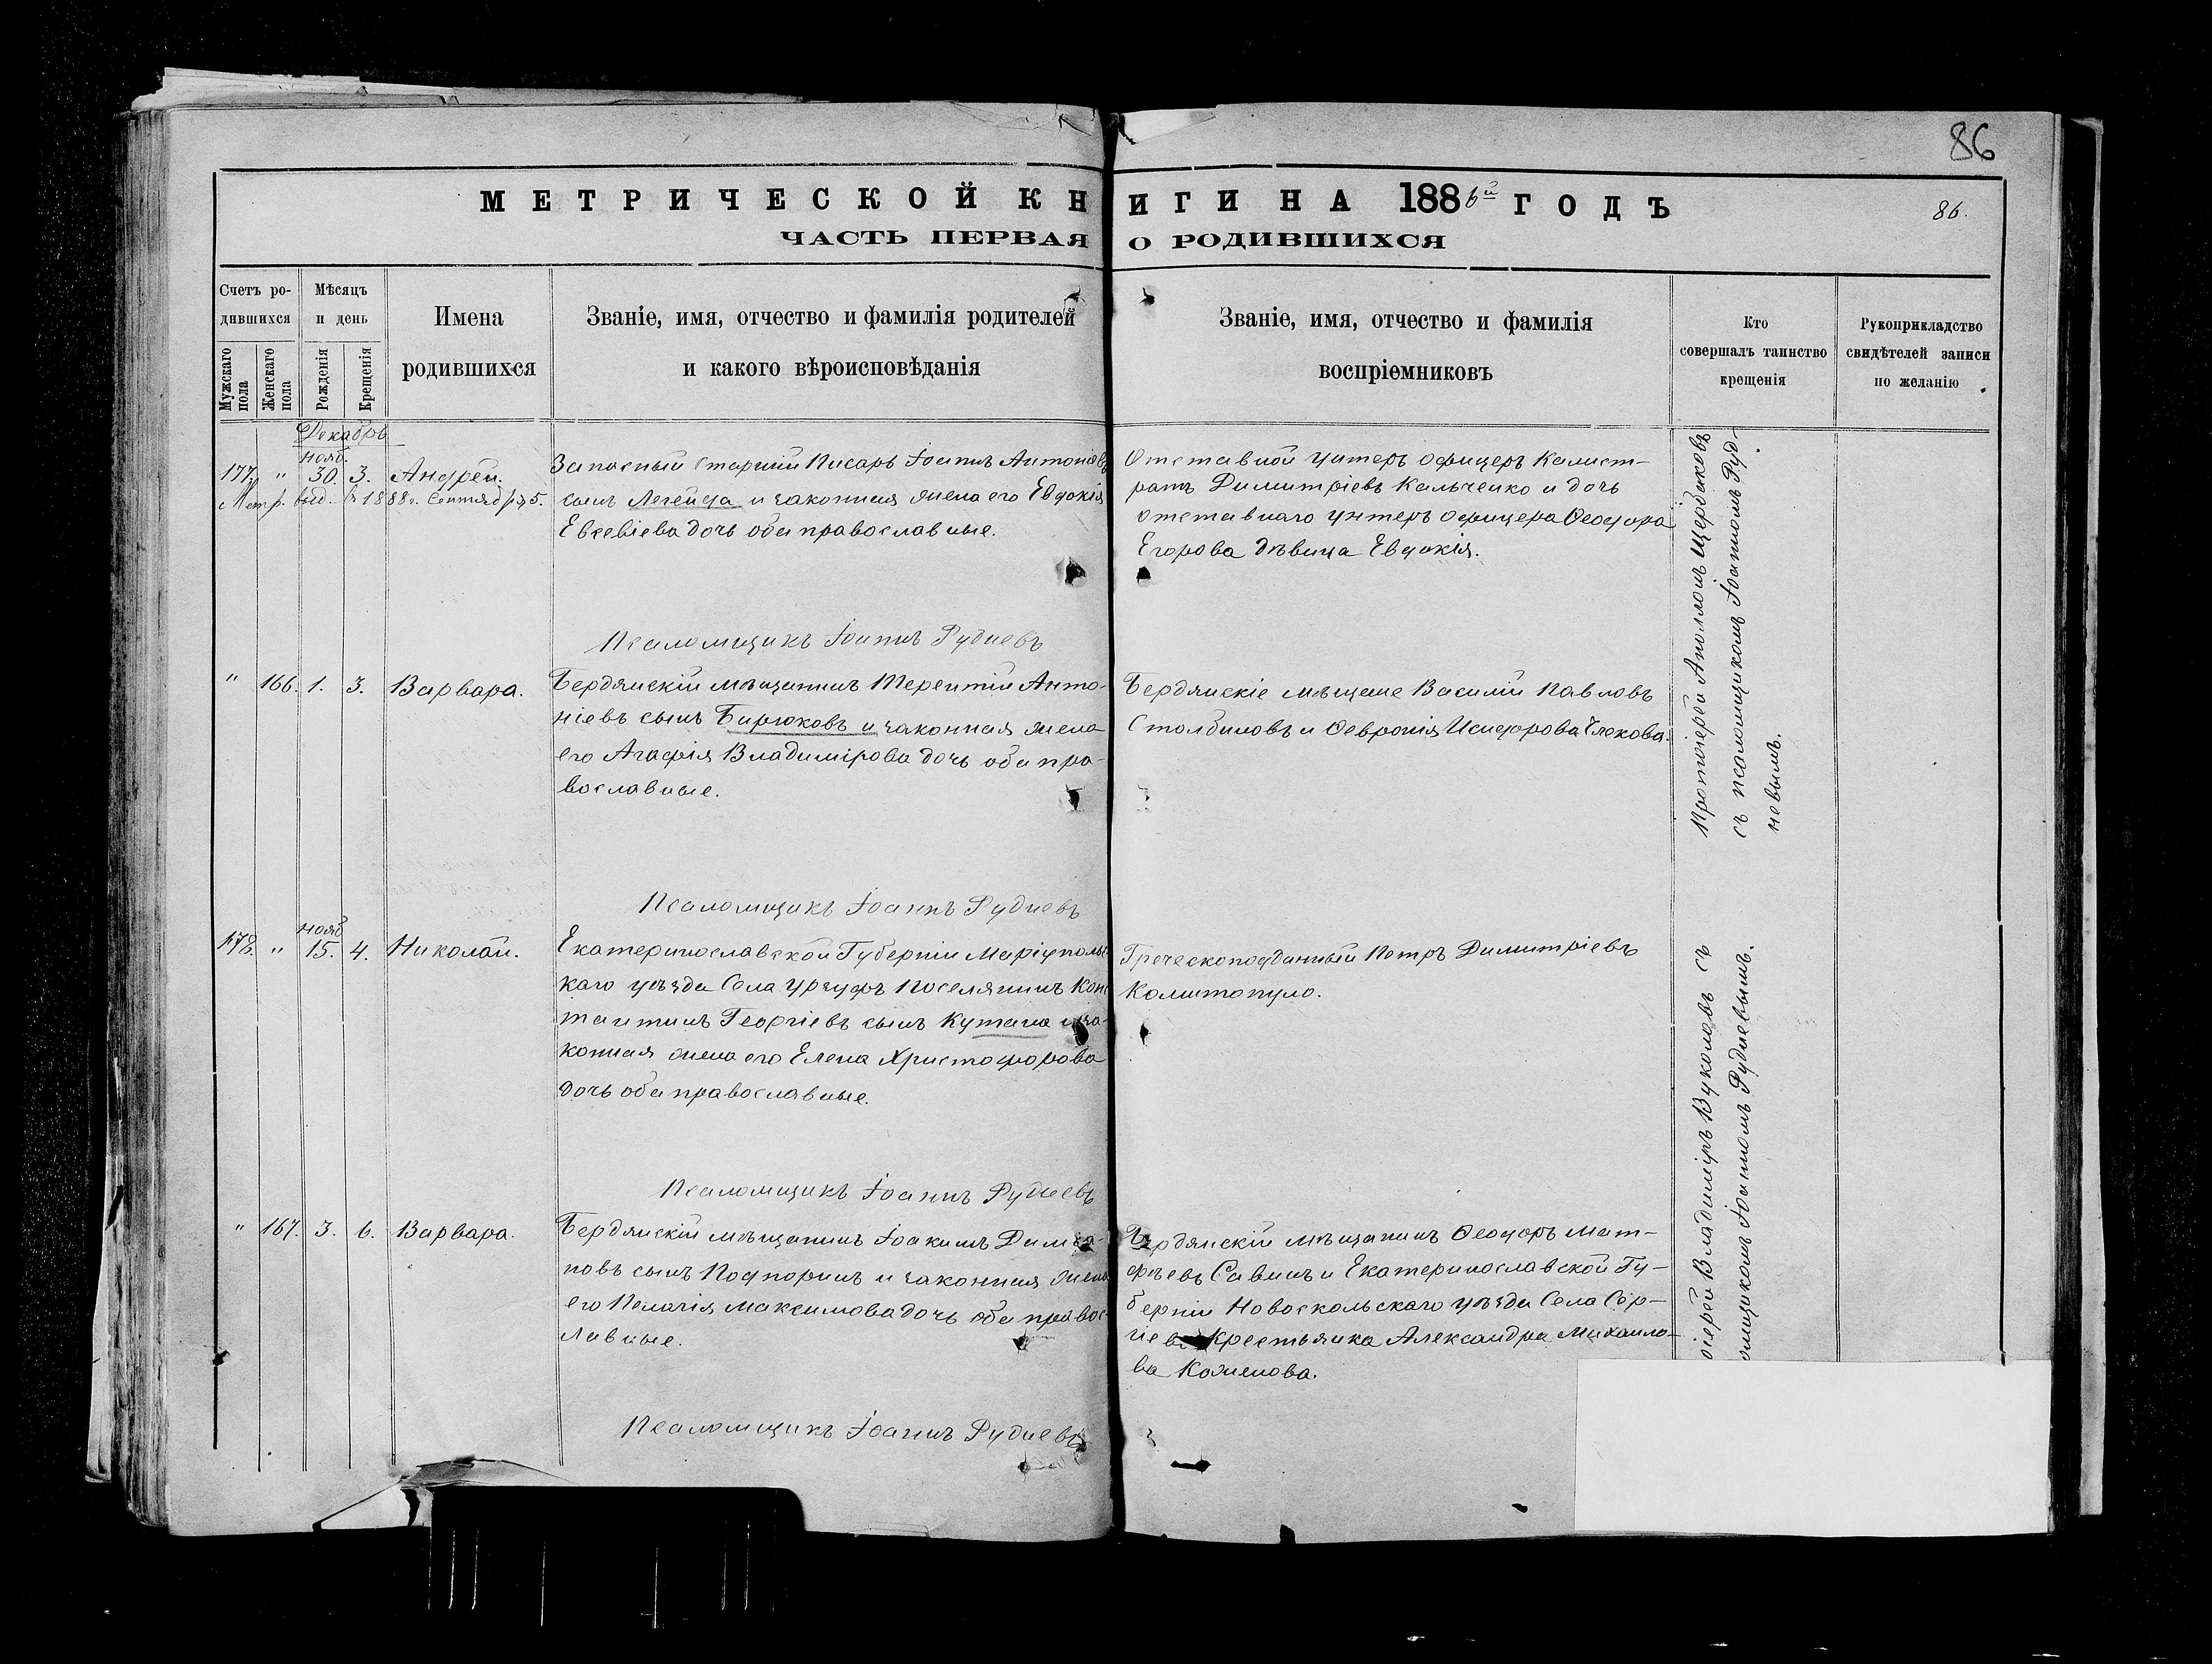 86
МЕТРИЧЕСКОЙ КНИГИ НА 1886й ГОДЪ
86.
ЧАСТЬ ПЕРВАЯ О РОДИВШИХСЯ
Счетъ ро-
дившихся
Мужскаго пола
Женскаго пола
Мѣсяцъ
и день
Рожденія
Крещенія
Имена
родившихся
Званіе, имя, отчество и фамилія родителей
и какого вѣроисповѣданія
Званіе, имя, отчество и фамилія
воспріемниковъ
Кто
совершалъ таинство
крещенія
Рукоприкладство
свидѣтелей записи
по желанію
Декабрь
нояб.
177. " 30. 3. Андрей.
Метр. выд. 1888г. Сентября 5.
Запасный старший Писарь Іоаннъ Антоніевъ
сынъ Легейда и законная жена его Евдокія
Евсевіева дочь оба православные.
Отставной унтеръ офицеръ Калист-
ратъ Димитріевъ Кальченко и дочь
отставнаго унтеръ офицера Ѳеодора
Егорова дѣвица Евдокія.
Протоіерей Аполлонъ Щербаковъ
съ псаломщикомъ Іоанномъ Руд-
невымъ.
Псаломщикъ Іоаннъ Рудневъ
" 166. 1. 3. Варвара.
Бердянскій мѣщанинъ Терентій Анто-
ніевъ сынъ Бирюковъ и законная жена
его Агафія Владимірова дочь оба пра-
вославные.
Бердянскіе мѣщане Василій Павловъ
Столбиновъ и Ѳевронія Исидорова
Псаломщикъ Іоаннъ Рудневъ
нояб
178. " 15. 4. Николай.
Екатеринославской Губерніи Маріупольс
каго уѣзда Села Урзуфъ Поселянинъ Конс
тантинъ Георгіевъ сынъ Кутана и за-
конная жена его Елена Христофорова
дочь оба православные.
Греческоподданный Петръ Димитріевъ
Комитопуло.
іерей Владиміръ Вуколовъ съ
омщикомъ Іоанномъ Рудневымъ.
Псаломщикъ Іоаннъ Рудневъ
" 167. 3. 6. Варвара.
Бердянскій мѣщанинъ Іоакимъ
новъ сынъ Подпоринъ и законная жена
его Пелагія Максимова дочь оба правос-
лавные.
Бердянскій мѣщанинъ Ѳеодоръ Мат-
фѣевъ Савинъ и Екатеринославской Гу-
берніи Новоскольскаго уѣзда Села Сер-
гіев Крестьянка Александра Михаило-
ва Коженова.
Псаломщикъ Іоаннъ Рудневъ